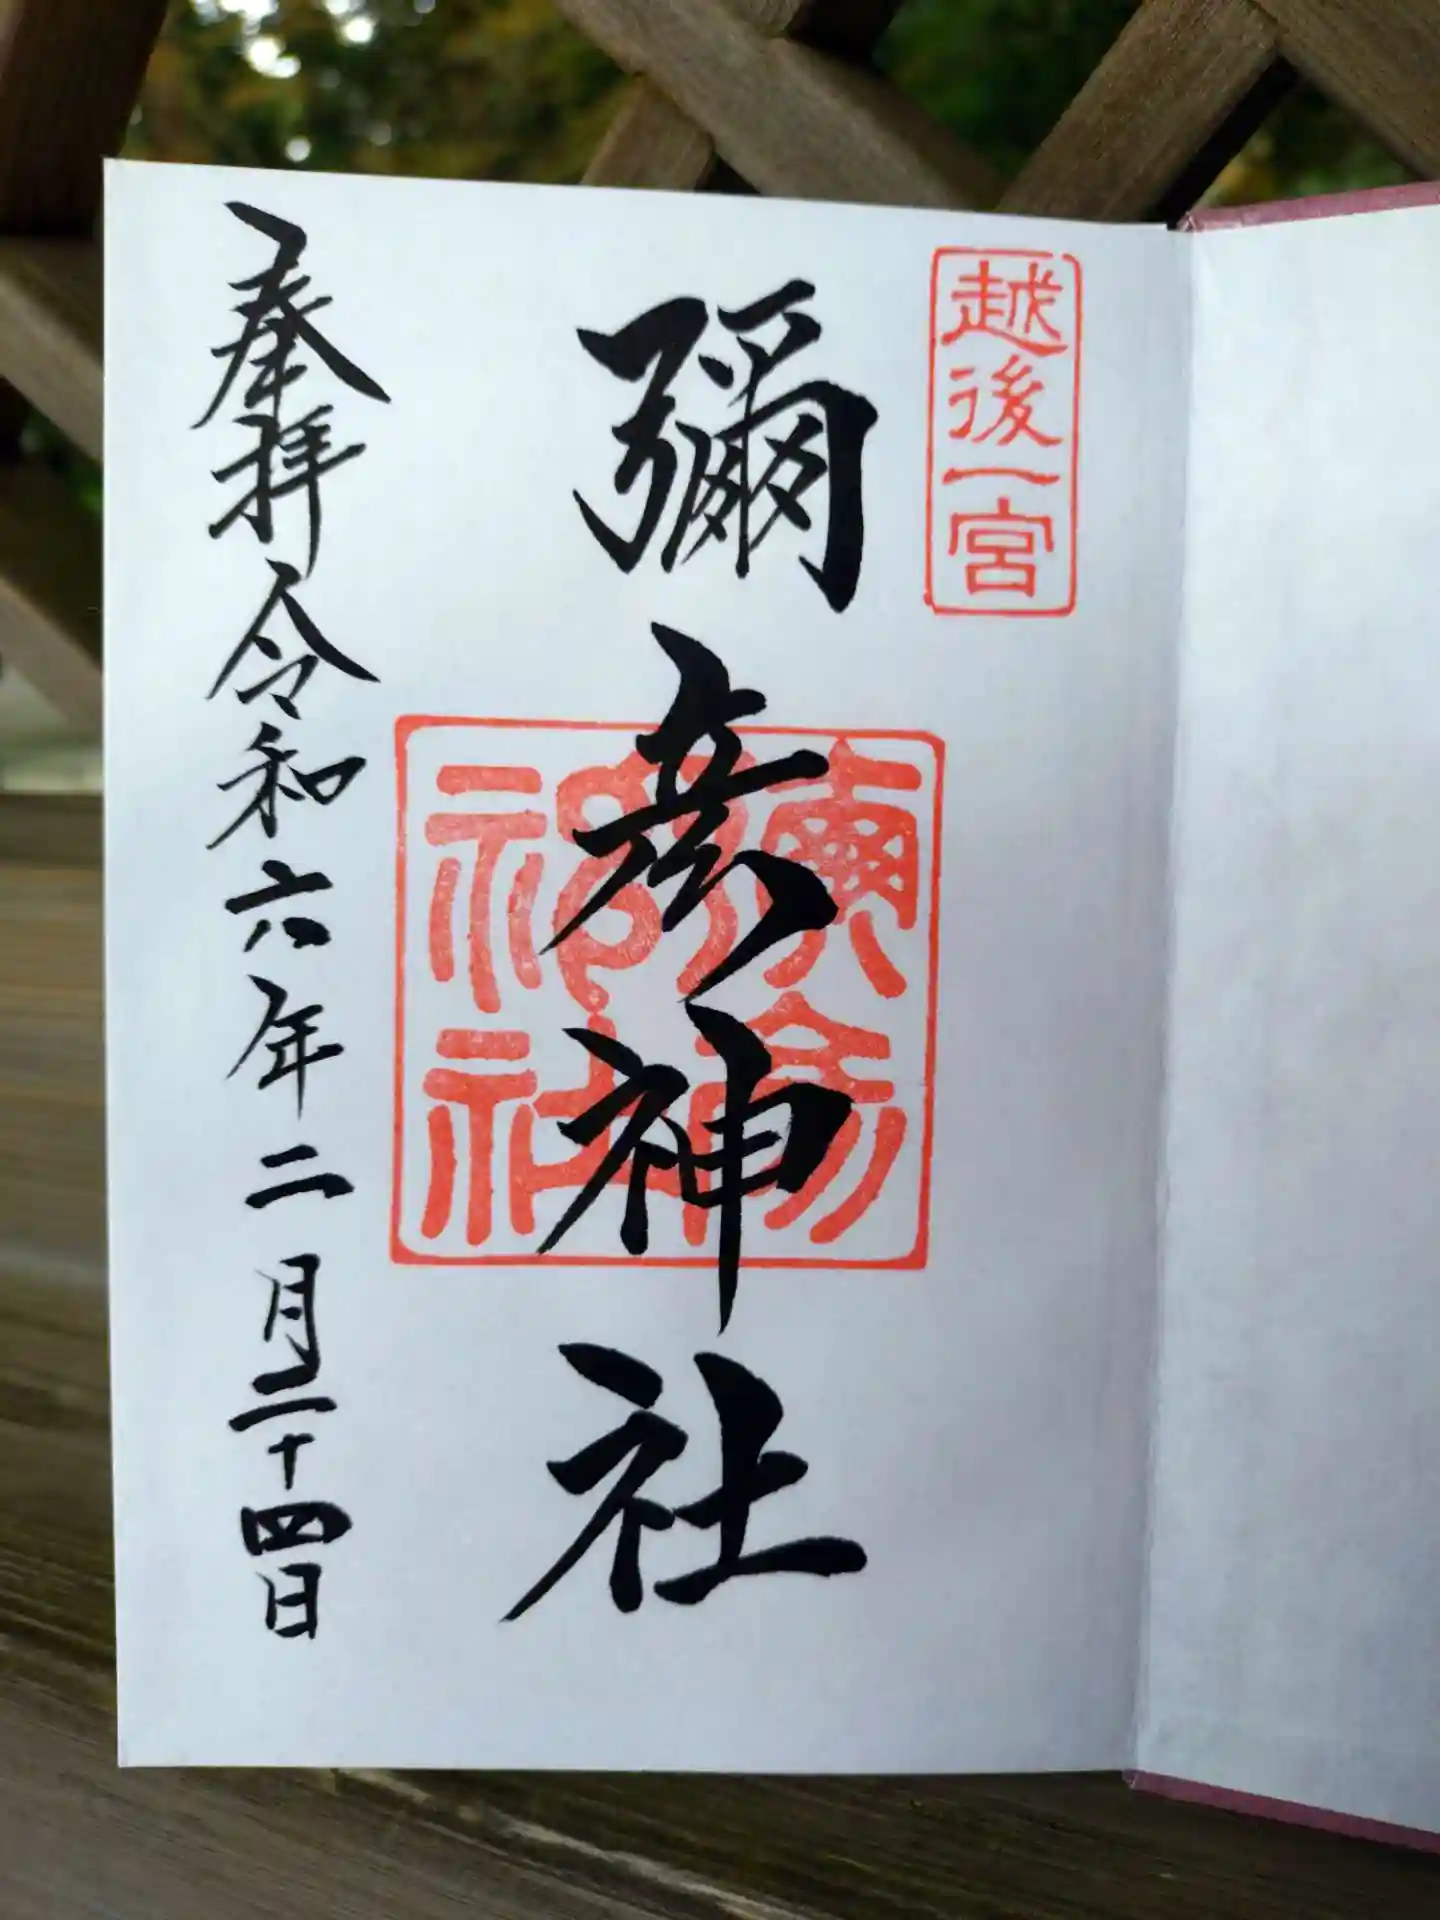 越後一宮
彌彦神社
奉拝 令和六年二月二十四日